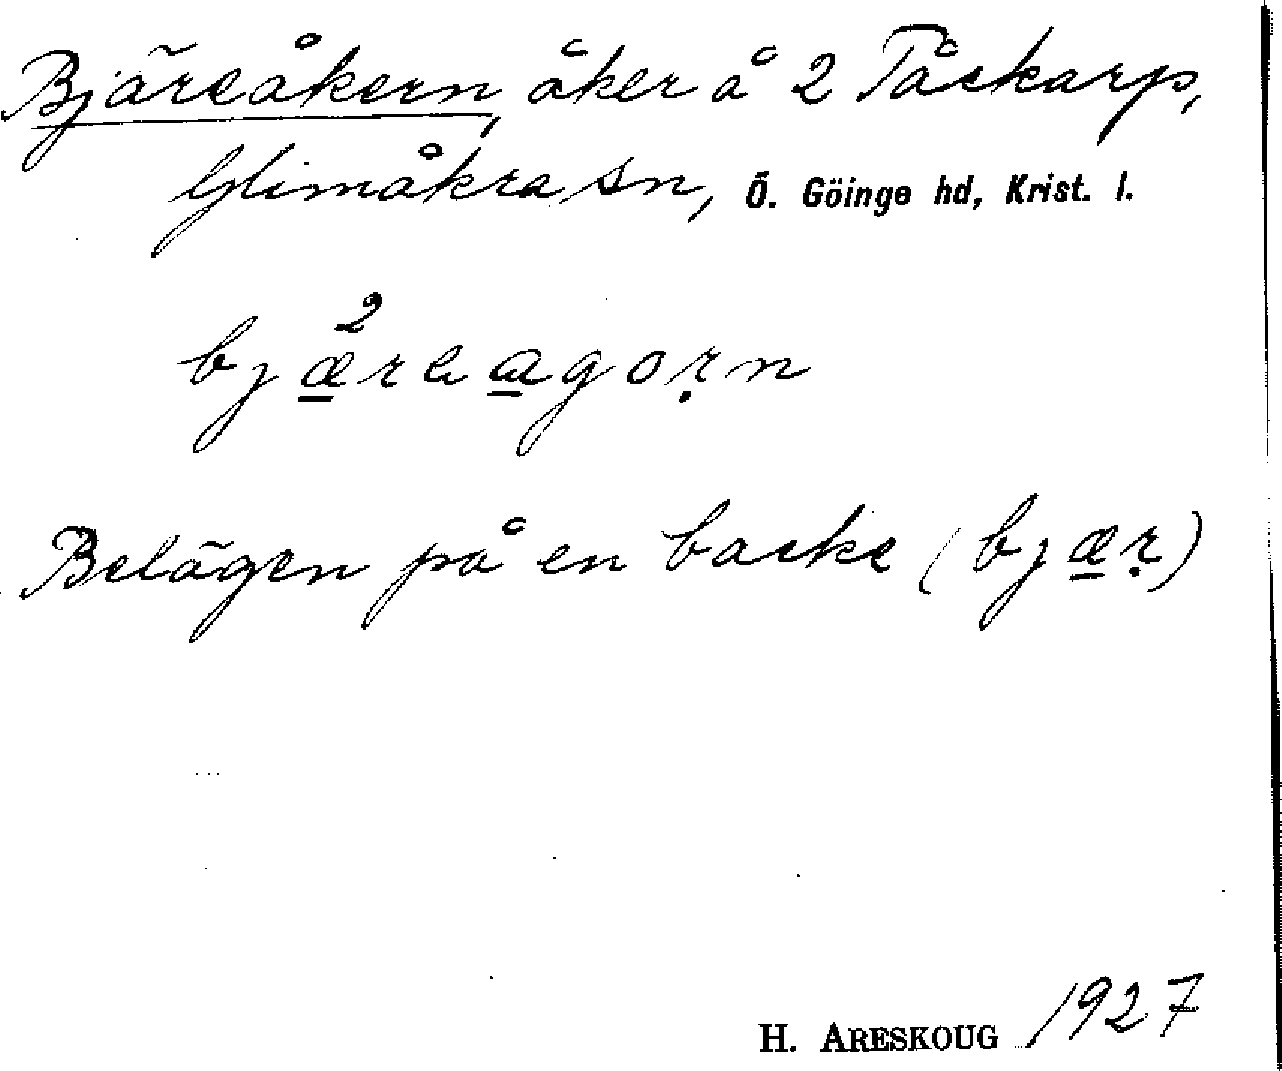 Bjäreåkern, åker å 2 Tåckarp,
Glimåkra sn, Ö. Göinge hd, Krist. l.
2
bjæ̲rea̲goṛn
Belägen på en backe (bjæ̲ṛ)
H. ARESKOUG 1927